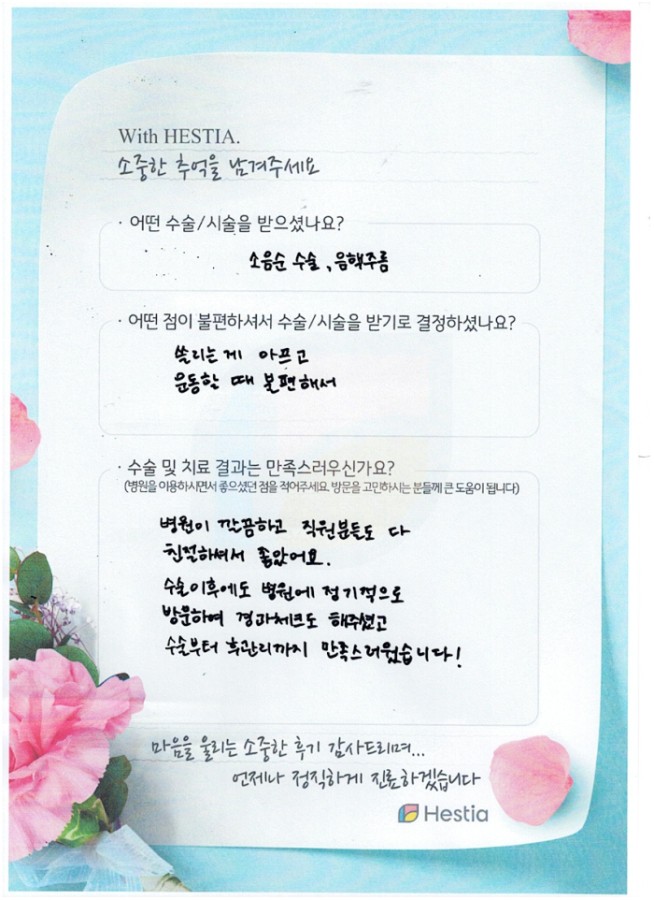 With HESTIA.
소중한 추억을 남겨주세요
· 어떤 수술/시술을 받으셨나요?
소음순 수술, 음핵주름
· 어떤 점이 불편하셔서 수술/시술을 받기로 결정하셨나요?
쓸리는게 아프고
운동할 때 불편해서
· 수술 및 치료 결과는 만족스러우신가요?
(병원을 이용하시면서 좋으셨던 점을 적어주세요. 방문을 고민하시는 분들께 큰 도움이 됩니다)
병원이 깔끔하고 직원분들도 다
친절하셔서 좋았어요.
수술이후에도 병원에 정기적으로
방문하여 경과체크도 해주셨고
수술부터 후관리까지 만족스러웠습니다!
마음을 울리는 소중한 후기 감사드리며...
언제나 정직하게 진료하겠습니다
Hestia